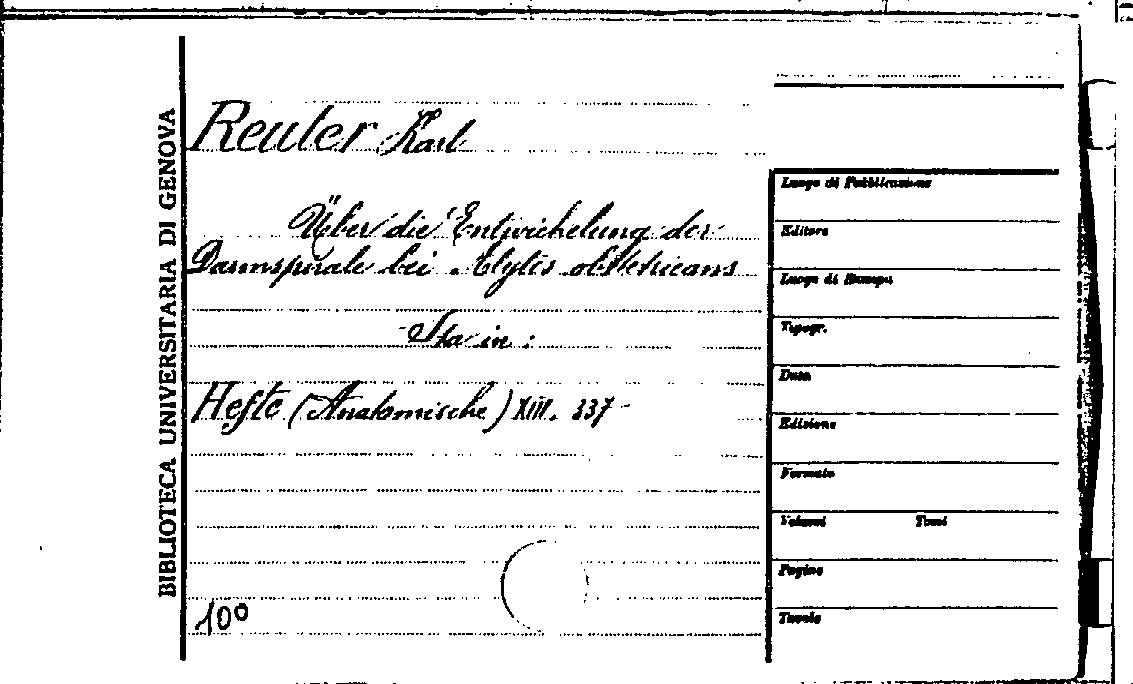 BIBLIOTECA UNIVERSITARIA DI GENOVA
Reuter Karl
Über die Entwickelung der
Darmspirale bei Alytes obstetricans
Sta in:
Hefte (Anatomische) XIII. 337-
10º
Luogo di Pubblicazione
Editore
Luogo di Stampa
Tipogr.
Data
Edizione
Formato
Volumi Tomi
Pagine
Tavole